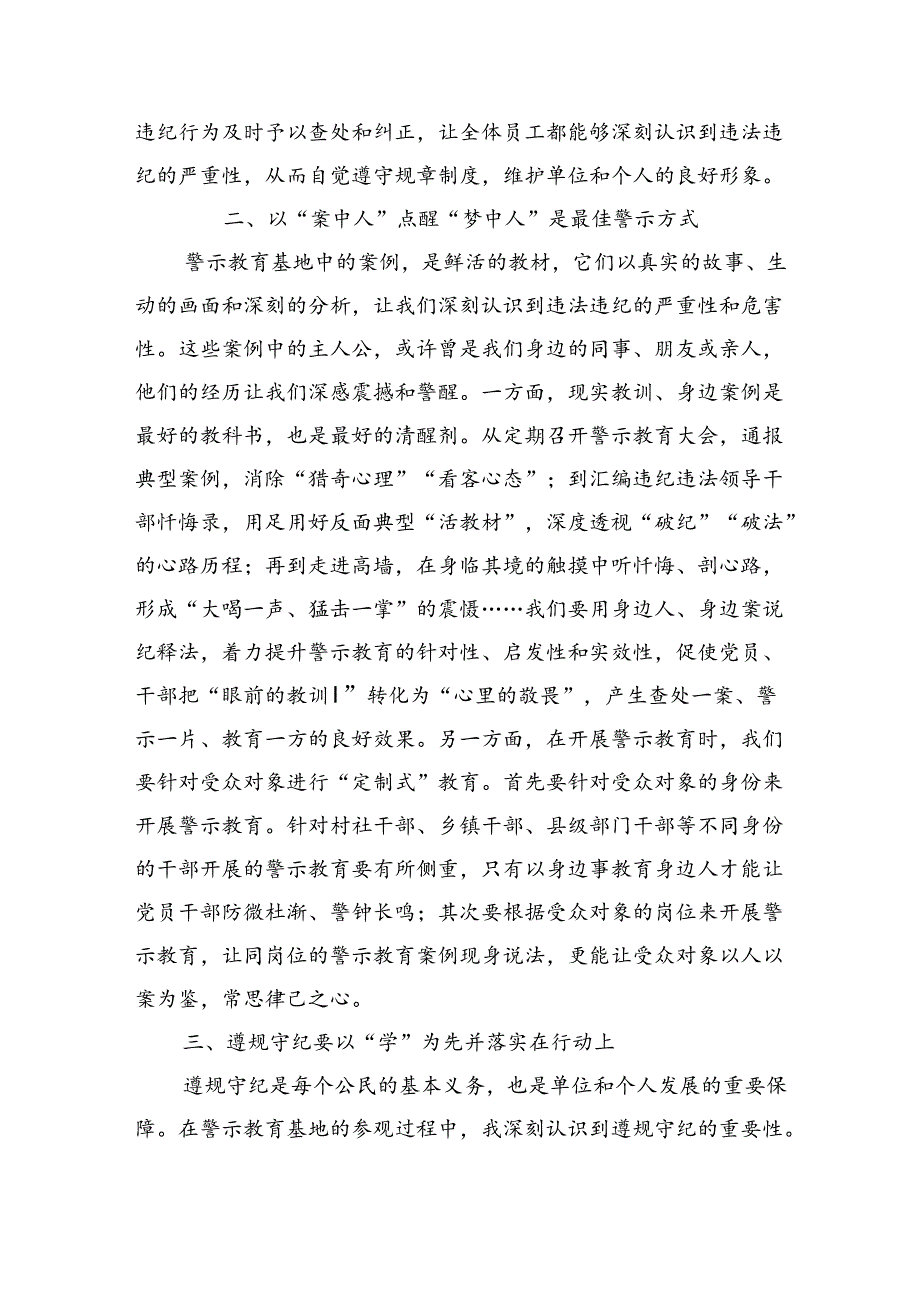 违纪行为及时予以查处和纠正，让全体员工都能够深刻认识到违法违
纪的严重性，从而自觉遵守规章制度，维护单位和个人的良好形象。
二、以“案中人”点醒“梦中人”是最佳警示方式
警示教育基地中的案例，是鲜活的教材，它们以真实的故事、生
动的画面和深刻的分析，让我们深刻认识到违法违纪的严重性和危害
性。这些案例中的主人公，或许曾是我们身边的同事、朋友或亲人，
他们的经历让我们深感震撼和警醒。一方面，现实教训、身边案例是
最好的教科书，也是最好的清醒剂。从定期召开警示教育大会，通报
典型案例，消除“猎奇心理”“看客心态”；到汇编违纪违法领导干
部忏悔录，用足用好反面典型“活教材”，深度透视“破纪”“破法”
的心路历程；再到走进高墙，在身临其境的触摸中听忏悔、剖心路，
形成“大喝一声、猛击一掌”的震慑……我们要用身边人、身边案说
纪释法，着力提升警示教育的针对性、启发性和实效性，促使党员、
干部把“眼前的教训|”转化为“心里的敬畏”，产生查处一案、警
示一片、教育一方的良好效果。另一方面，在开展警示教育时，我们
要针对受众对象进行“定制式”教育。首先要针对受众对象的身份来
开展警示教育。针对村社干部、乡镇干部、县级部门干部等不同身份
的干部开展的警示教育要有所侧重，只有以身边事教育身边人才能让
党员干部防微杜渐、警钟长鸣；其次要根据受众对象的岗位来开展警
示教育，让同岗位的警示教育案例现身说法，更能让受众对象以人以
案为鉴，常思律己之心。
三、遵规守纪要以“学”为先并落实在行动上
遵规守纪是每个公民的基本义务，也是单位和个人发展的重要保
障。在警示教育基地的参观过程中，我深刻认识到遵规守纪的重要性。